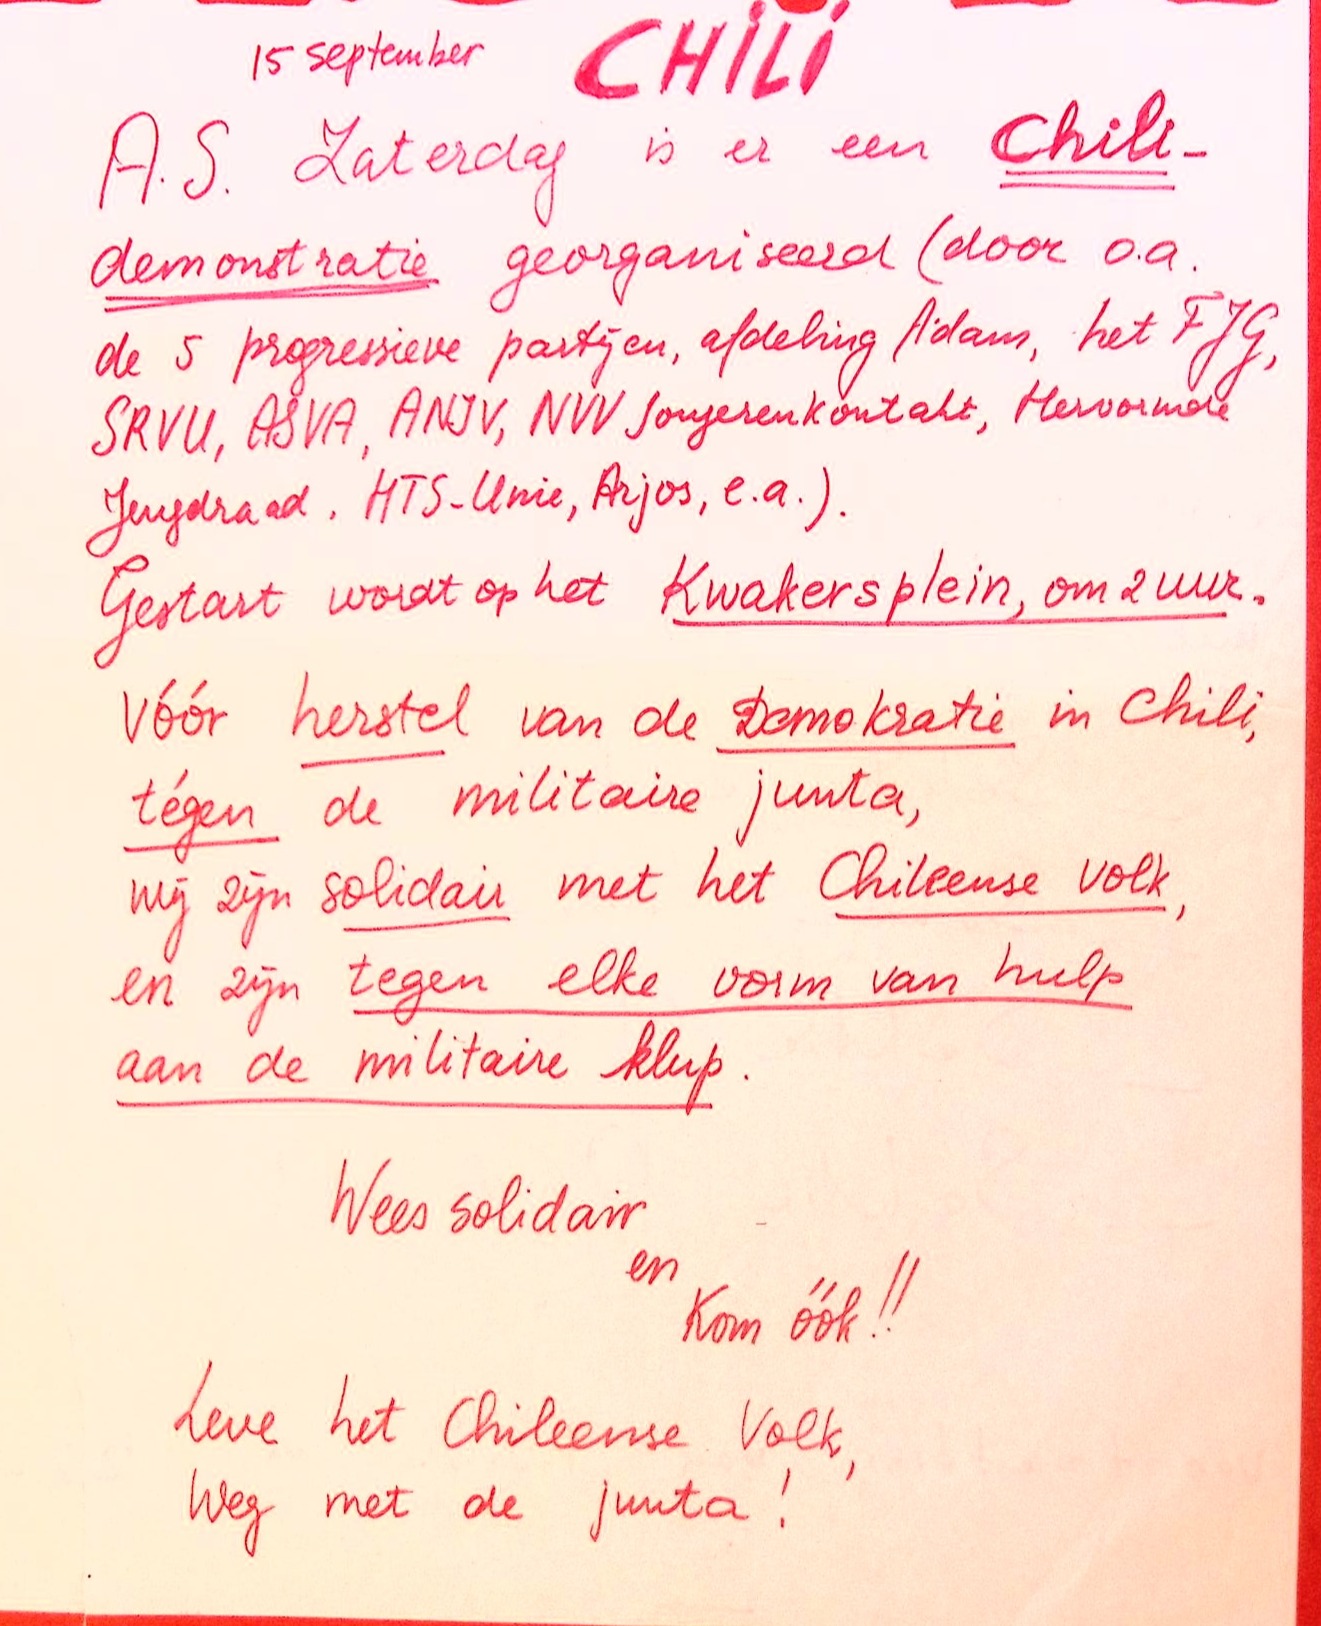 15 september CHILI
A.S. Zaterdag is er een Chili-
demonstratie georganiseerd (door o.a.
de 5 progressieve partijen, afdeling A'dam, het FJG,
SRVU, ASVA, ANJV, NVV Jongerenkontakt, Hervormde
Jeugdraad, HTS-Unie, Arjos, e.a.).
Gestart wordt op het Kwakersplein, om 2 uur.
vóór herstel van de Demokratie in Chili,
tégen de militaire junta,
wij zijn solidair met het Chileense volk,
en zijn tegen elke vorm van hulp
aan de militaire klup.
Wees solidair
en
Kom óók!!
Leve het Chileense Volk,
Weg met de junta!